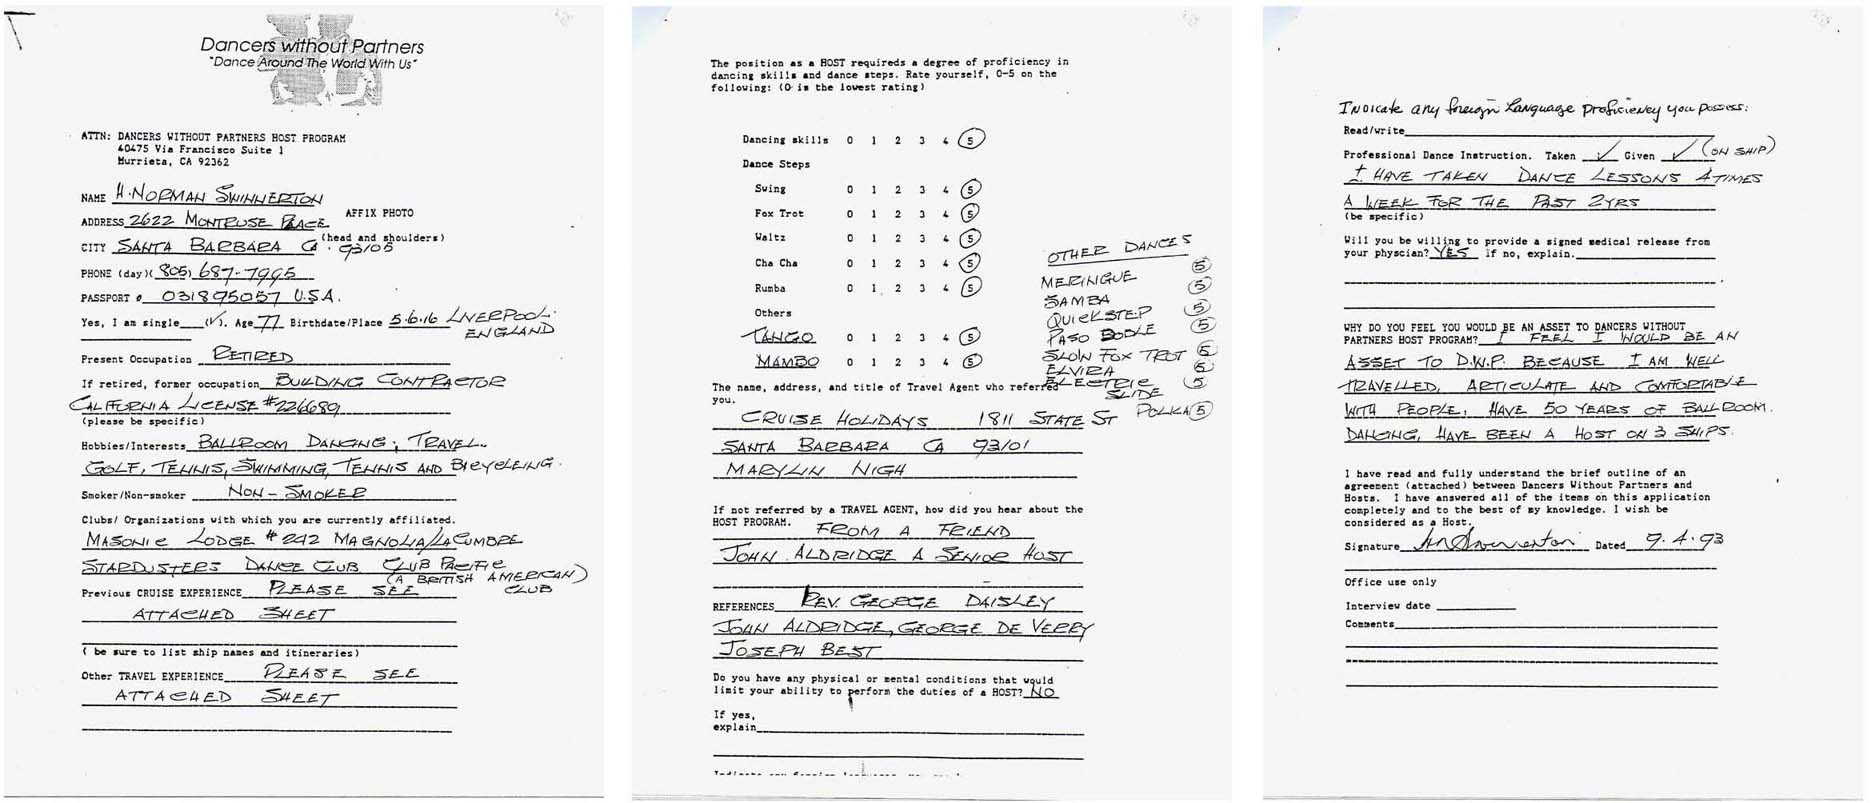 Dancers without Partners
"Dance Around The World With Us"
ATTN: DANCERS WITHOUT PARTNERS HOST PROGRAM
40475 Via Francisco Suite 1
Murrieta, CA 92362
NAME H. NORMAN SWINNERTON
ADDRESS 2622 MONTROSE PLACE AFFIX PHOTO
CITY SANTA BARBARA CA (head and shoulders) 93105
PHONE (day)( 805) 687-7995
PASSPORT # 031895057 U.S.A.
Yes, I am single (✓). Age 77 Birthdate/Place 5.6.16 LIVERPOOL.
ENGLAND
Present Occupation RETIRED
If retired, former occupation BUILDING CONTRACTOR
CALIFORNIA LICENSE #226689
(please be specific)
Hobbies/Interests BALLROOM DANCING, TRAVEL.
GOLF, TENNIS, SWIMMING, TENNIS AND BICYCLEING.
Smoker/Non-smoker NON-SMOKER
Clubs/ Organizations with which you are currently affiliated.
MASONIC LODGE #242 MAGNOLIA/LACUMBRE
STARDUSTERS DANCE CLUB. CLUB PACIFIC
(A BRITISH AMERICAN)
CLUB
Previous CRUISE EXPERIENCE PLEASE SEE
ATTACHED SHEET
( be sure to list ship names and itineraries)
Other TRAVEL EXPERIENCE PLEASE SEE
ATTACHED SHEET
The position as a HOST requireds a degree of proficiency in
dancing skills and dance steps. Rate yourself, 0-5 on the
following: (0 is the lowest rating)
Dancing skills 0 1 2 3 4 5
Dance Steps
Swing 0 1 2 3 4 5
Fox Trot 0 1 2 3 4 5
Waltz 0 1 2 3 4 5
Cha Cha 0 1 2 3 4 5
Rumba 0 1 2 3 4 5
Others
TANGO 0 1 2 3 4 5
MAMBO 0 1 2 3 4 5
OTHER DANCES
MERINGUE 5
SAMBA 5
QUICKSTEP 5
PASO DOBLE 5
SLOW FOX TROT 5
ELVIRA 5
ELECTRIC SLIDE 5
POLKA 5
The name, address, and title of Travel Agent who referred
you.
CRUISE HOLIDAYS 1811 STATE ST
SANTA BARBARA CA 93101
MARYLIN NIGH
If not referred by a TRAVEL AGENT, how did you hear about the
HOST PROGRAM. FROM A FRIEND
JOHN ALDRIDGE A SENIOR HOST
REFERENCES REV. GEORGE DAISLEY
JOHN ALDRIDGE, GEORGE DE VERRY
JOSEPH BEST
Do you have any physical or mental conditions that would
limit your ability to perform the duties of a HOST? NO
If yes,
explain
Indicate any foreign Language proficiency you possess:
Read/write
Professional Dance Instruction. Taken ✓ Given ✓ (ON SHIP)
I HAVE TAKEN DANCE LESSONS 4 TIMES
A WEEK FOR THE PAST 2YRS
(be specific)
Will you be willing to provide a signed medical release from
your physcian? YES if no, explain.
WHY DO YOU FEEL YOU WOULD BE AN ASSET TO DANCERS WITHOUT
PARTNERS HOST PROGRAM? I FEEL I WOULD BE AN
ASSET TO D.W.P. BECAUSE I AM WELL
TRAVELLED, ARTICULATE AND COMFORTABLE
WITH PEOPLE, HAVE 50 YEARS OF BALLROOM.
DANCING, HAVE BEEN A HOST ON 3 SHIPS.
I have read and fully understand the brief outline of an
agreement (attached) between Dancers Without Partners and
Hosts. I have answered all of the items on this application
completely and to the best of my knowledge. I wish be
considered as a Host.
Signature HN Swinnerton Dated 9.4.93
Office use only
Interview date
Comments